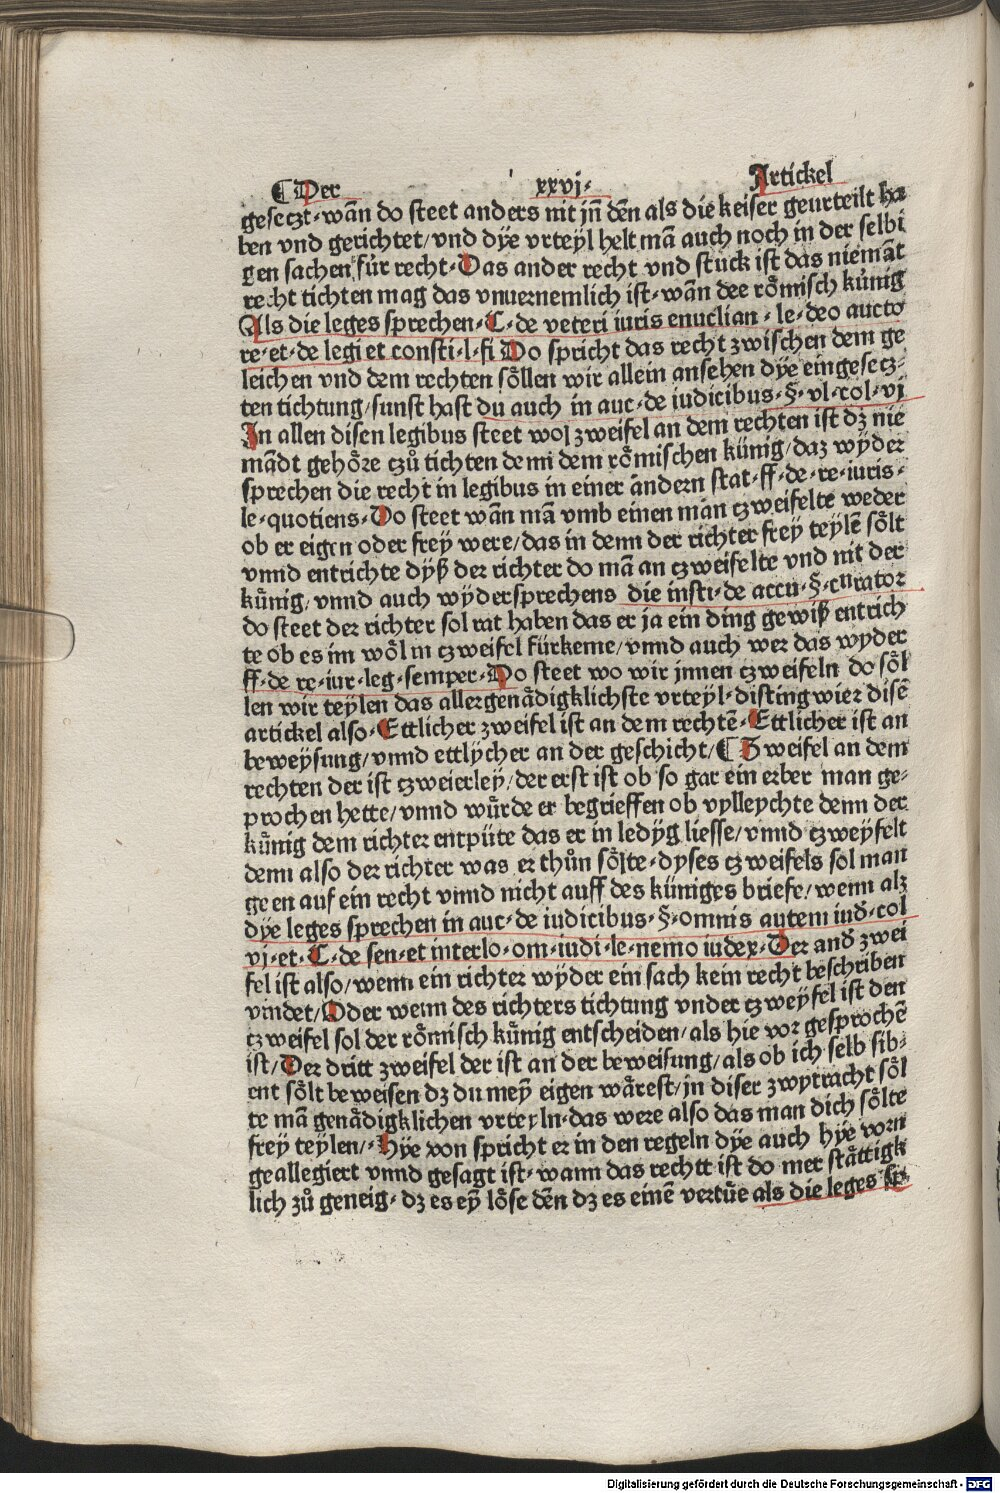 ¶ Der xxvj. Artickel
gesetzt. wān do steet anders nit jn̄ dēn als die keiser geurteilt ha
ben vnd gerichtet/ vnd dÿe vrteÿl helt mā auch noch in der selbi
gen sachen für recht. Das ander recht vnd stück ist das niemāt
recht tichten mag das vnuernemlich ist. wān dee rȫmisch künig
Als die leges sprechen. C. de veteri iuris enuclian. le. deo aucto
re. et. de legi et consti. l. fi Do spricht das recht zwischen dem ge
leichen vnd dem rechten sȫllen wir allein ansehen dÿe eingesetz-
ten tichtung/ sunst hast du auch in auc. de iudicibus. §. vl. col. vj
In allen disen legibus steet wol zweifel an dem rechten ist dz nie
mādt gehȫre czů tichten denn dem rȫmischen künig/ daz wÿder
sprechen die recht in legibus in einer andern stat. ff. de. re. iuris.
le. quotiens. Do steet wān mā vmb einen man czweifelte weder
ob er eigen oder frey were/ das in denn der richter frey teylē sȫlt
vnnd entrichte dÿß der richter do mā an czweifelte vnd nit der
künig/ vnnd auch wÿdersprechens die insti. de accu. §. curator
do steet der richter sol rat haben das er ja ein ding gewiß entrich
te ob es im wȫl in czweifel fürkeme/ vnnd auch wer das wyder
ff. de re. iur. leg. semper. Do steet wo wir jnnen czweifeln do sȫl
len wir teylen das allergenädigklichste vrteyl. distingwier disē
artickel also. Ettlicher zweifel ist an dem rechtē. Ettlicher ist an
beweÿsung/ vnnd ettlÿcher an der geschicht/ ¶ Zweifel an dem
rechten der ist czweierleÿ/ der erst ist ob so gar ein erber man ge-
prochen hette/ vnnd würde er begrieffen ob vylleychte denn der
künig dem richter entpüte das er in ledÿg liesse/ vnnd czweÿfelt
denn also der richter was er thůn sȫlte. dyses czweifels sol man
geen auf ein recht vnnd nicht auff des küniges briefe/ wenn alz
dÿe leges sprechen in auc. de iudicibus. §. omnis autem iud̄. col
vj. et. C. de sen. et interlo. om. iudi. le. nemo iudex. Der and̄ zwei
fel ist also/ wenn ein richter wÿder ein sach kein recht beschriben
vindet/ Oder wenn des richters tichtung vnder czweÿfel ist den
czweifel sol der rȫmisch künig entscheiden/ als hie vor gesprochē
ist/ Der dritt zweifel der ist an der beweisung/ als ob ich selb sib-
ent sȫlt beweisen dz du meÿ eigen wärest/ jn diser zwytracht sȫl
te mā genädigklichen vrteyln. das were also das man dich sȫlte
freÿ teylen/. Hÿe von spricht er in den regeln dÿe auch hÿe vorn
geallegiert vnnd gesagt ist. wann das rechtt ist do mer stättigk
lich zů geneig. dz es eÿ lȫse dēn dz es einē vertüe als die leges spr